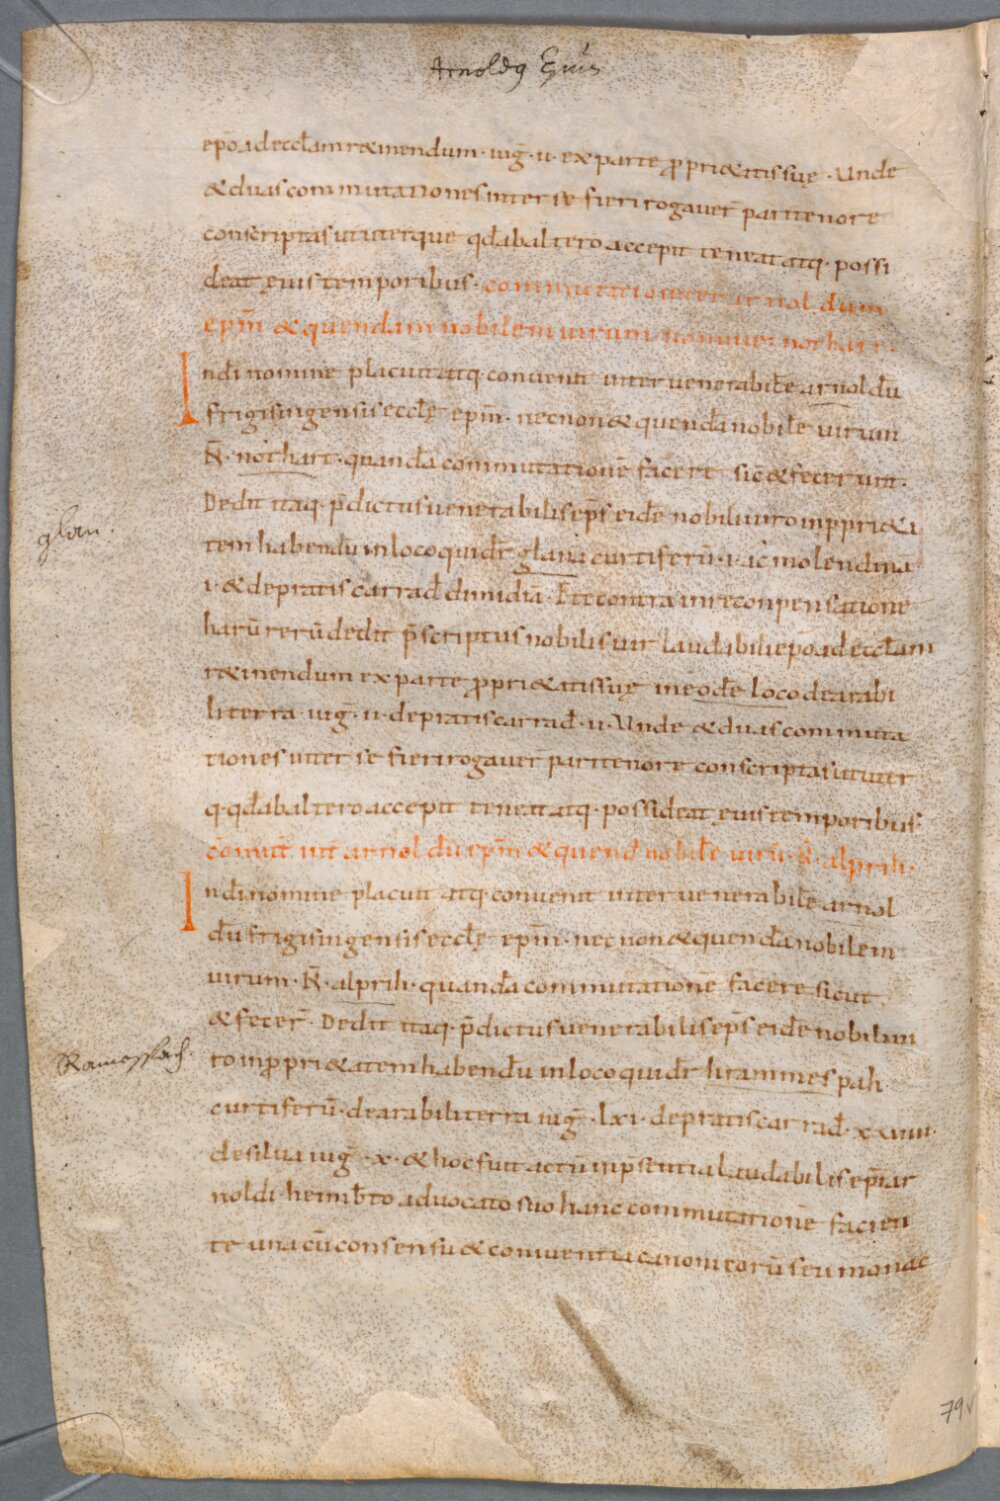 Arnoldꝰ Epũs
ep̃o ad eccłam r&inendum · iug̃ · u · ex parte ꝓpri&atis suę · Unde
& duas commutationes inter se fieri rogauer̃ pari tenore
conscriptas ut uterque qđ ab altero accepit teneat atq · possi
deat ęuis temporibus · commutatio inter arnoldum
ep̃m & quendam nobilem uirum nomine nothart ·
In dī nomine placuit atq · conuenit inter uenerabilē arnoldū
frigisingensis eccłę ep̃m · nec non & quendā nobilē uirum
Ñ · nothart · quandā commutationē facere sic̄ & fecerunt ·
Dedit itaq · p̄dictus uenerabilis ep̃s eidē nobili uiro in ꝓpri&a
tem habendū in loco qui dr̄ glana curtiferū · i · ac molendinū
i · & de pratis carrad̄ dimidiā · E contra in reconpensatione
harū rerū dedit p̄scriptus nobilis uir laudabili ep̃o ad eccłam
r&inendum ex parte ꝓpri&atis suę in eodē loco de arabi
li terra · iug̃ · ii · de pratis carrad̄ · u · Unde & duas commuta
tiones inter se fieri rogauer̃ pari tenore conscriptas ut uter
q · qđ ab altero accepit teneat atq · possideat ęuis temporibus ·
cōmut̄ int̄ arnoldū ep̃m & quend̄ nobilē uirū · Ñ · alprih ·
In dī nomine placuit atq · conuenit inter uenerabilē arnol
dū frigisingensis eccłę ep̃m · nec non & quendā nobilem
uirum · Ñ · alprih · quandā commutationē facere sicut
& fecer̃ · Dedit itaq · p̄dictus uenerabilis ep̃s eidē nobili ui
ro in ꝓpri&atem habendū in loco qui dr̄ hrammespah
curtiferū · de arabili terra iug̃ · lxi · de pratis carrad̄ · xxiiii ·
de silua iug̃ · x · & hoc fuit actū in p̄sentia laudabilis ep̃i ar
noldi · heimb̄to aduocato suo hanc commutationē facien
te una cū consensu & coniuentia canonicorū seu monac
glan
Ramespach
79v